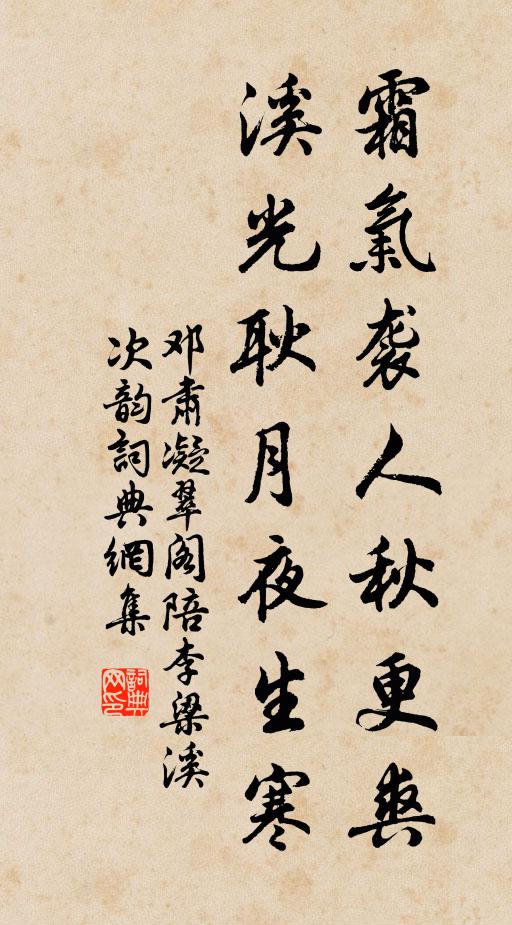 霜氣襲人秋更爽
溪光耿月夜生寒
邓肅凝翠阁陪李梁溪
次韵詞典網集
詞典网印